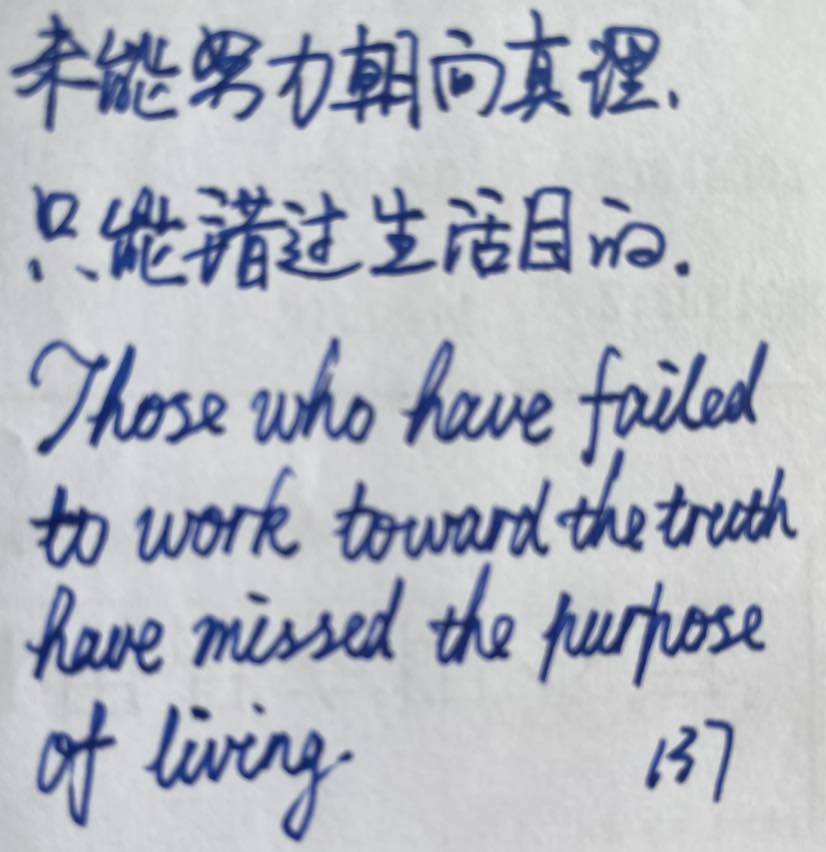 未能努力朝向真理,
只能错过生活目的.
Those who have failed
to work toward the truth
have missed the purpose
of living.
137